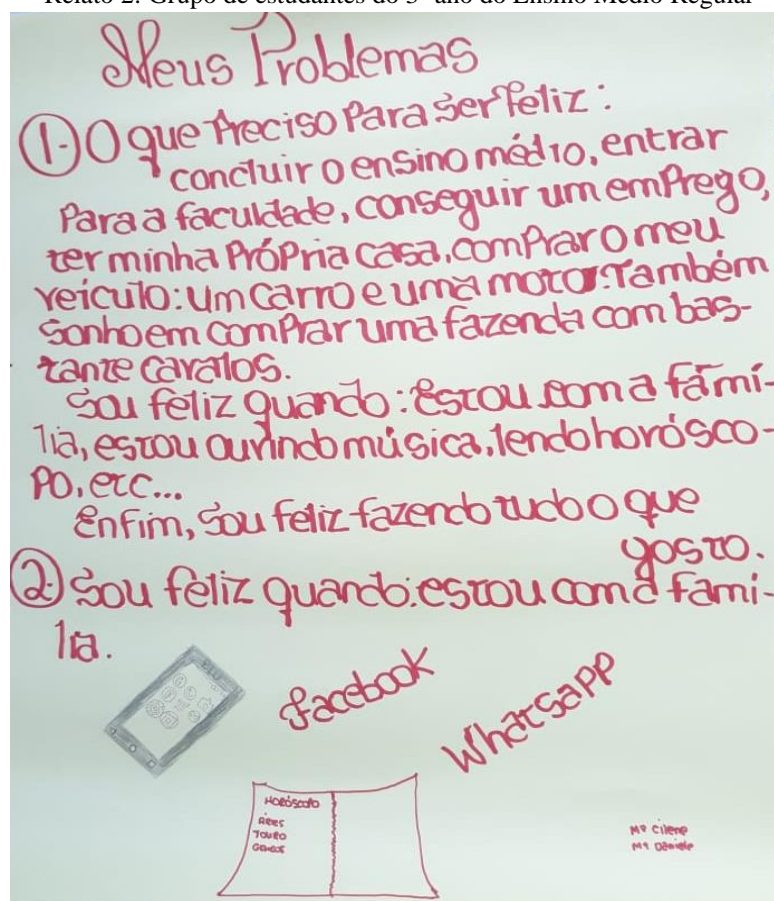 Relato 2: Grupo de estudantes do 3º ano do Ensino Médio Regular
Meus Problemas
1-) O que Preciso Para ser feliz:
concluir o ensino médio, entrar
Para a faculdade, conseguir um emPrego,
ter minha PróPria casa, comPrar o meu
veículo: um carro e uma moto. Também
sonho em comPrar uma fazenda com bas-
tante cavalos.
Sou feliz quando: Estou com a famí-
lia, estou ouvindo música, lendo horósco-
Po, etc...
Enfim, sou feliz fazendo tudo o que
gosto.
2 Sou feliz quando: estou com a famí-
lia.
BLU
Facebook
Whatsapp
Horóscopo
Áries
Touro
Mª Cilene
Mª Daniele